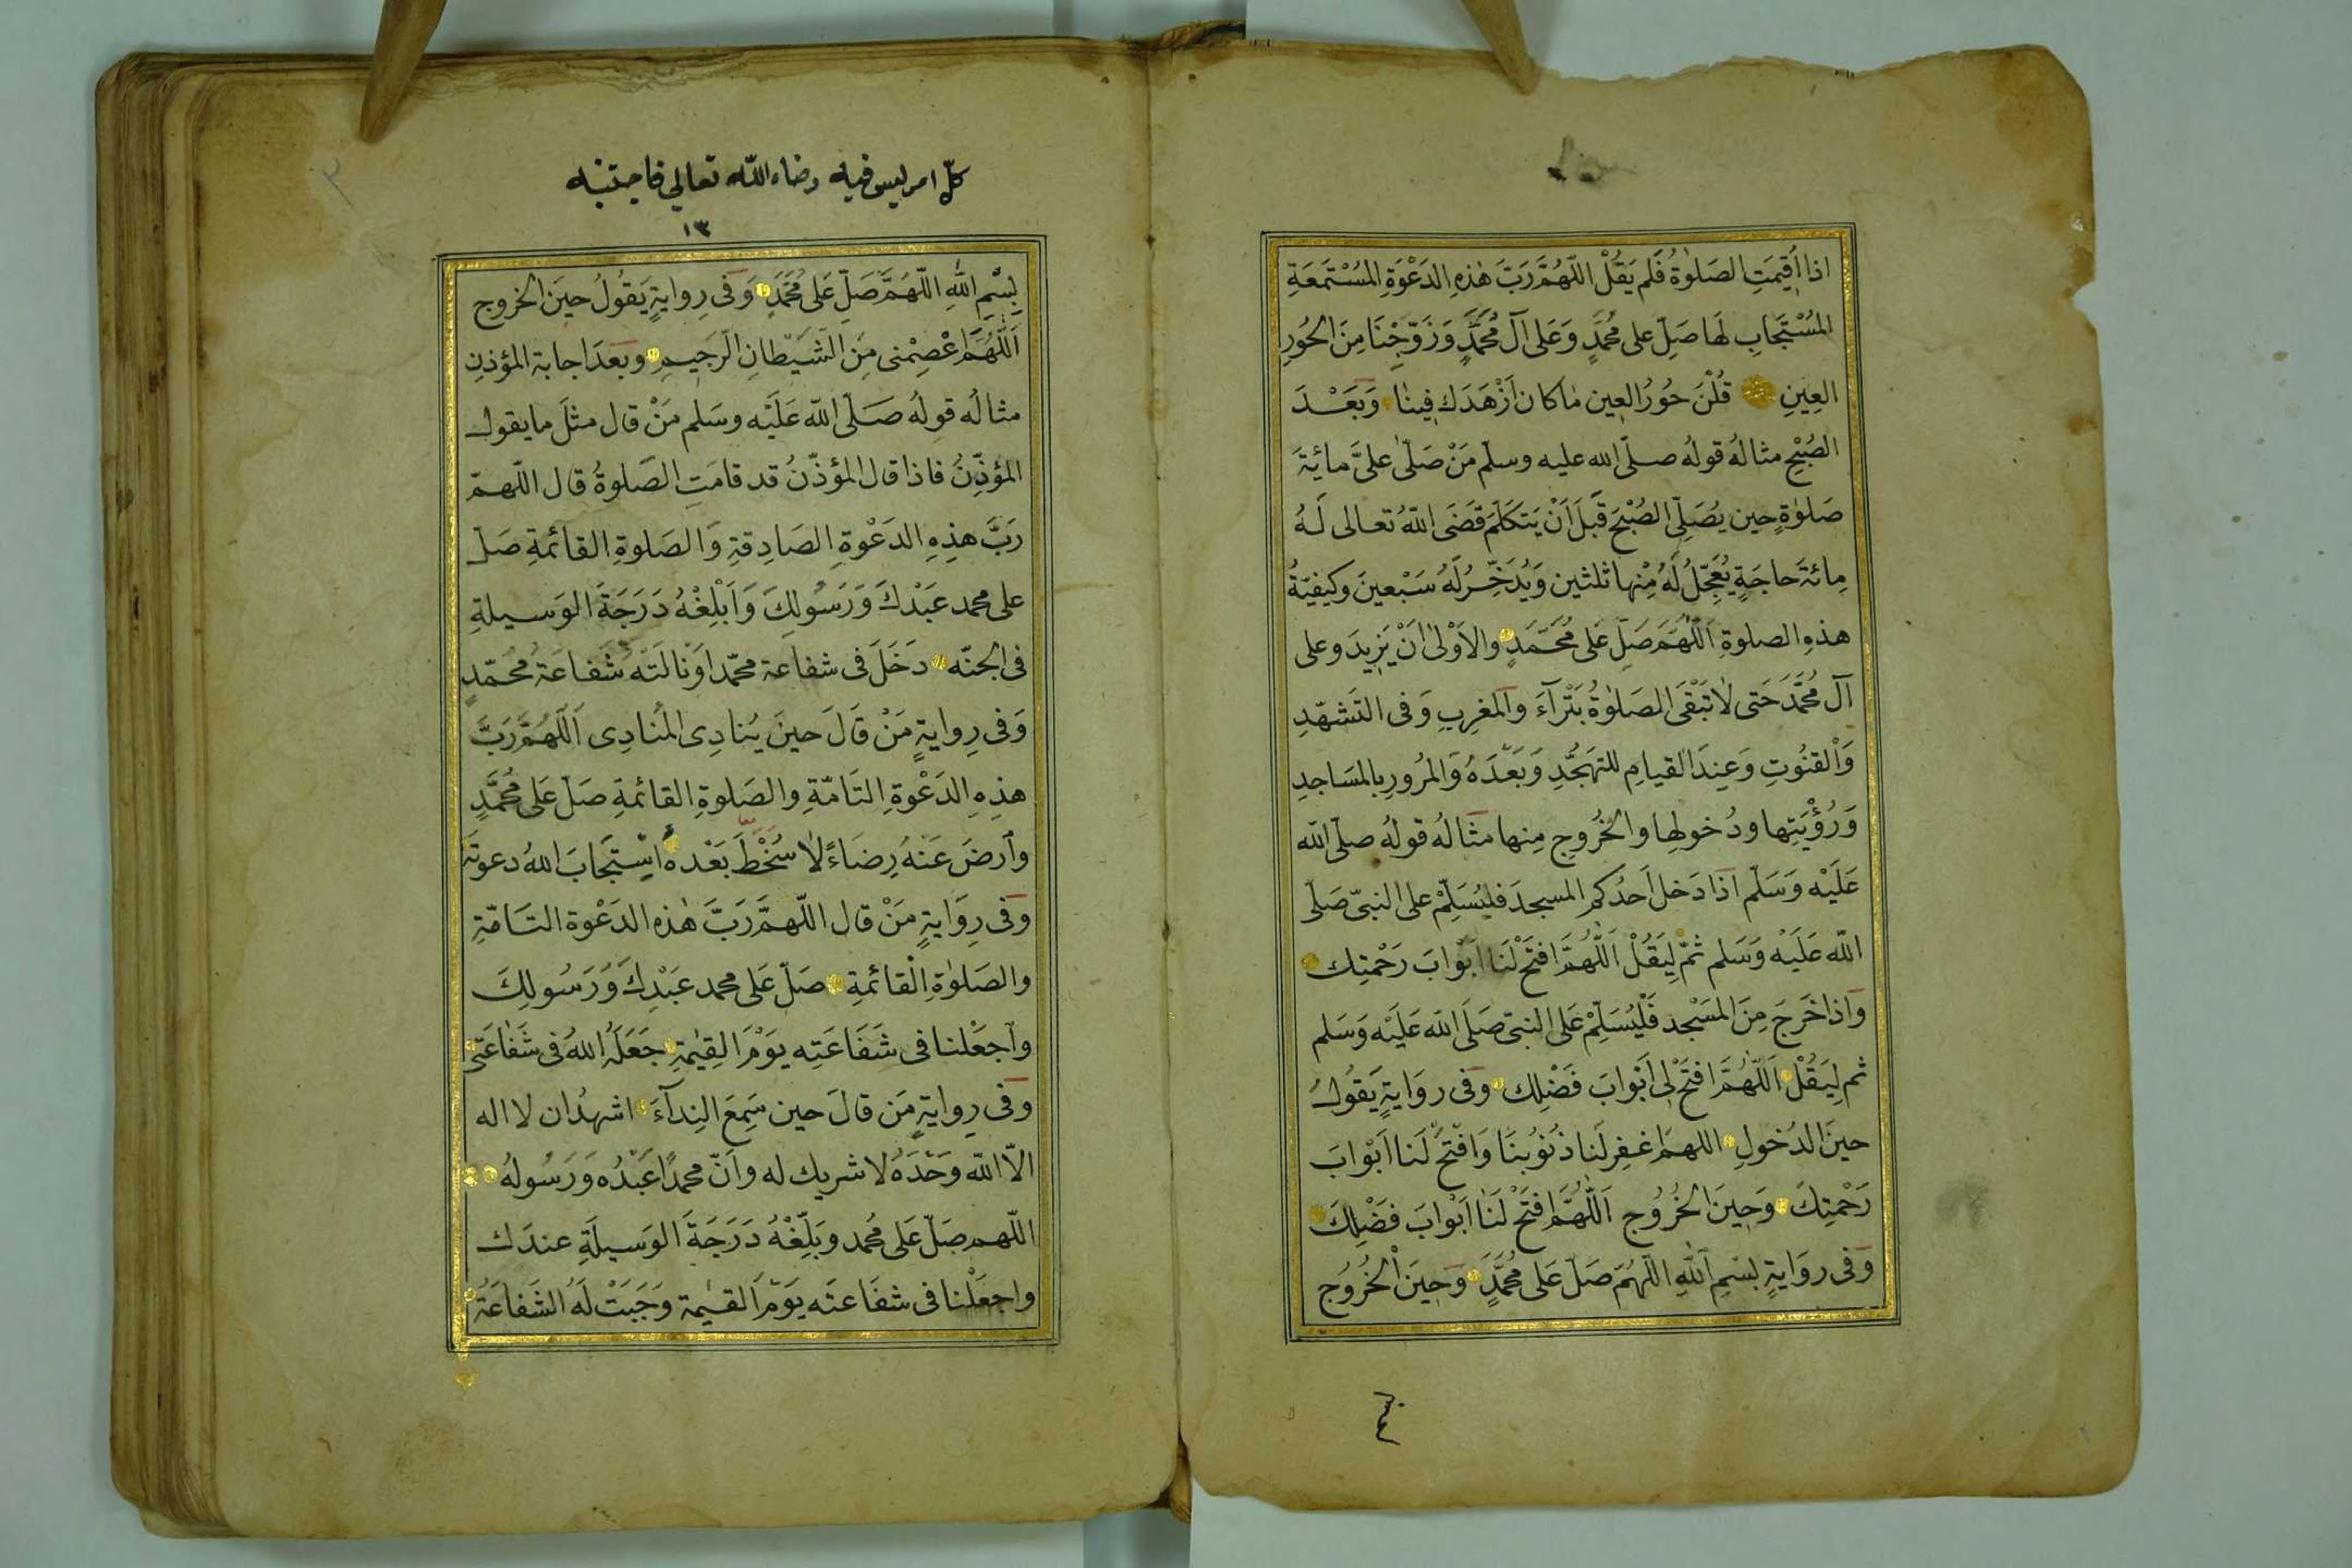 اذا أُقِيمَتِ الصَلوٰةُ فَلم يَقُلْ اللّهُمَّ رَبَّ هٰذِهِ الدَعْوَةِ المُسْتَمَعَةِ
المُسْتَجَابِ لَها صَلِّ على مُحمّدٍ وَعَلى آلِ مُحَمَّدٍ وَزَوِّجْنَا مِنَ الحُورِ
العِينِ قُلْنَ حُورُ العِينِ مٰا كانَ اَزْهَدَكَ فِينٰا وَبَعْدَ
الصُبْحِ مثالهُ قولهُ صلّى الله عليه وسلّم مَنْ صَلّىٰ علىَّ مائةَ
صَلوٰةٍ حين يُصَلِّى الصُبْحَ قَبلَ اَنْ يَتكلّمَ قَضَى اللهُ تعالى لَهُ
مِائةَ حاجَةٍ يُعَجِّلُ لَهُ مِنْها ثلثين وَيُدَخِّرُ لَهُ سَبْعينَ وكيفيّةُ
هذهِ الصلوةِ اَللّهُمَّ صَلِّ عَلى مُحَمَّدٍ والاَوْلىٰ اَنْ يَزِيدَ وعلى
آل مُحمَّدَ حَتى لٰا تَبْقَى الصَلوٰةُ بَتْرآءَ والمغرِبِ وَفى التَشهّدِ
وَالْقنُوتِ وَعِندَ القيامِ للتهَجُّدِ وَبَعْدَهُ وَالمرُورِ بالمسَاجدِ
وَرُؤْيَتِها ودُخولِها والخُرُوجِ مِنها مثالُه قولُه صلّى الله
عَلَيْه وَسَلّم اذَا دَخل اَحدُكم المسجدَ فليُسَلِّمْ على النبىّ صَلّى
الله عَلَيْه وَسَلم ثمّ لِيَقُلْ اَللّهُمَّ افتَحْ لَنَا اَبْوابَ رَحْمتِك
وَاذا خَرجَ مِنَ المَسْجد فَلْيُسَلِّمْ عَلى النبىّ صَلّى الله عَلَيْه وَسَلم
ثم لِيَقُلْ اَللّهُمَّ افتَحْ لِى اَبْوابَ فَضْلِك وفى روَايةٍ يَقُولُ
حينَ الدُخولِ اللهمّ اغفِر لَنا ذنُوبنَا وَافْتَحْ لَنا اَبْوابَ
رَحْمتِكَ وَحِينَ الخُرُوج اَللّهُمَّ افتَحْ لَنٰا اَبْوابَ فَضْلِكَ
وَفى روَايةٍ بسْمِ اللهِ اللّهُمّ صَلّ عَلى مُحمَّدٍ وَحِينَ الْخُرُوج
كلّ امر ليس فيه رضاء الله تعالى فاجتنبه
١٣
بِسْمِ اللهِ اللّهُمَّ صَلِّ عَلى مُحَمّدٍ وَفى رِوايةٍ يَقُولُ حينَ الخروج
اَللّهُمَّ اعْصِمْنى مِنَ الشَّيْطانِ الرَجيمِ وبَعدَ اجابة المؤذنِ
مثالُه قولهُ صَلّى الله عَلَيْه وسَلم مَنْ قال مثلَ ما يقول
المؤذِّنُ فاذا قال المؤذّنُ قد قامَتِ الصَّلوةُ قال اللّهمّ
رَبَّ هذِهِ الدَعْوةِ الصَادِقةِ وَالصَلوةِ القائمةِ صَلّ
على محمد عَبْدكَ وَرَسُولِكَ وَاَبْلِغْهُ دَرَجَةَ الوَسيلةِ
فى الجنّه دَخَلَ فى شفاعة محمّد اوْ نالَتْه شَفاعَةُ مُحمّدٍ
وَفى رِوايةٍ مَنْ قَالَ حينَ يُنادِى المُنادِى اَللّهُمَّ رَبَّ
هذِهِ الدَعْوةِ التَامّةِ والصَلوةِ القائمةِ صَلّ عَلى مُحمَّدٍ
وآرضَ عَنْهُ رِضاءً لٰا سُخْطَ بَعْده اسْتَجَابَ اللهُ دعوتَهُ
وَفى رِوَايةٍ مَنْ قال اللّهمَّ رَبَّ هٰذه الدَعْوة التَامّةِ
والصَلوٰةِ الْقائمةِ صَلّ عَلى محمد عَبْدِكَ وَرَسُولِكَ
واَجعَلْنا فى شَفَاعَتِه يوَمَ القِيٰمةِ جَعَلَهُ اللهُ فى شَفٰاعَتى
وَفى رِوايةٍ مَن قالَ حين سَمِعَ النِدآءَ اشهدُ ان لا اله
الاّ الله وَحْدَهُ لا شريك له وانّ محمدًا عَبْدُه وَرَسُولهُ
اللّهم صَلّ عَلى مُحمد وَبَلِّغْهُ دَرَجَةَ الوَسيلَةِ عندَك
واجعَلْنا فى شفَاعتَه يَومَ القيٰمة وَجَبَتْ لَهُ الشَفاعَةُ